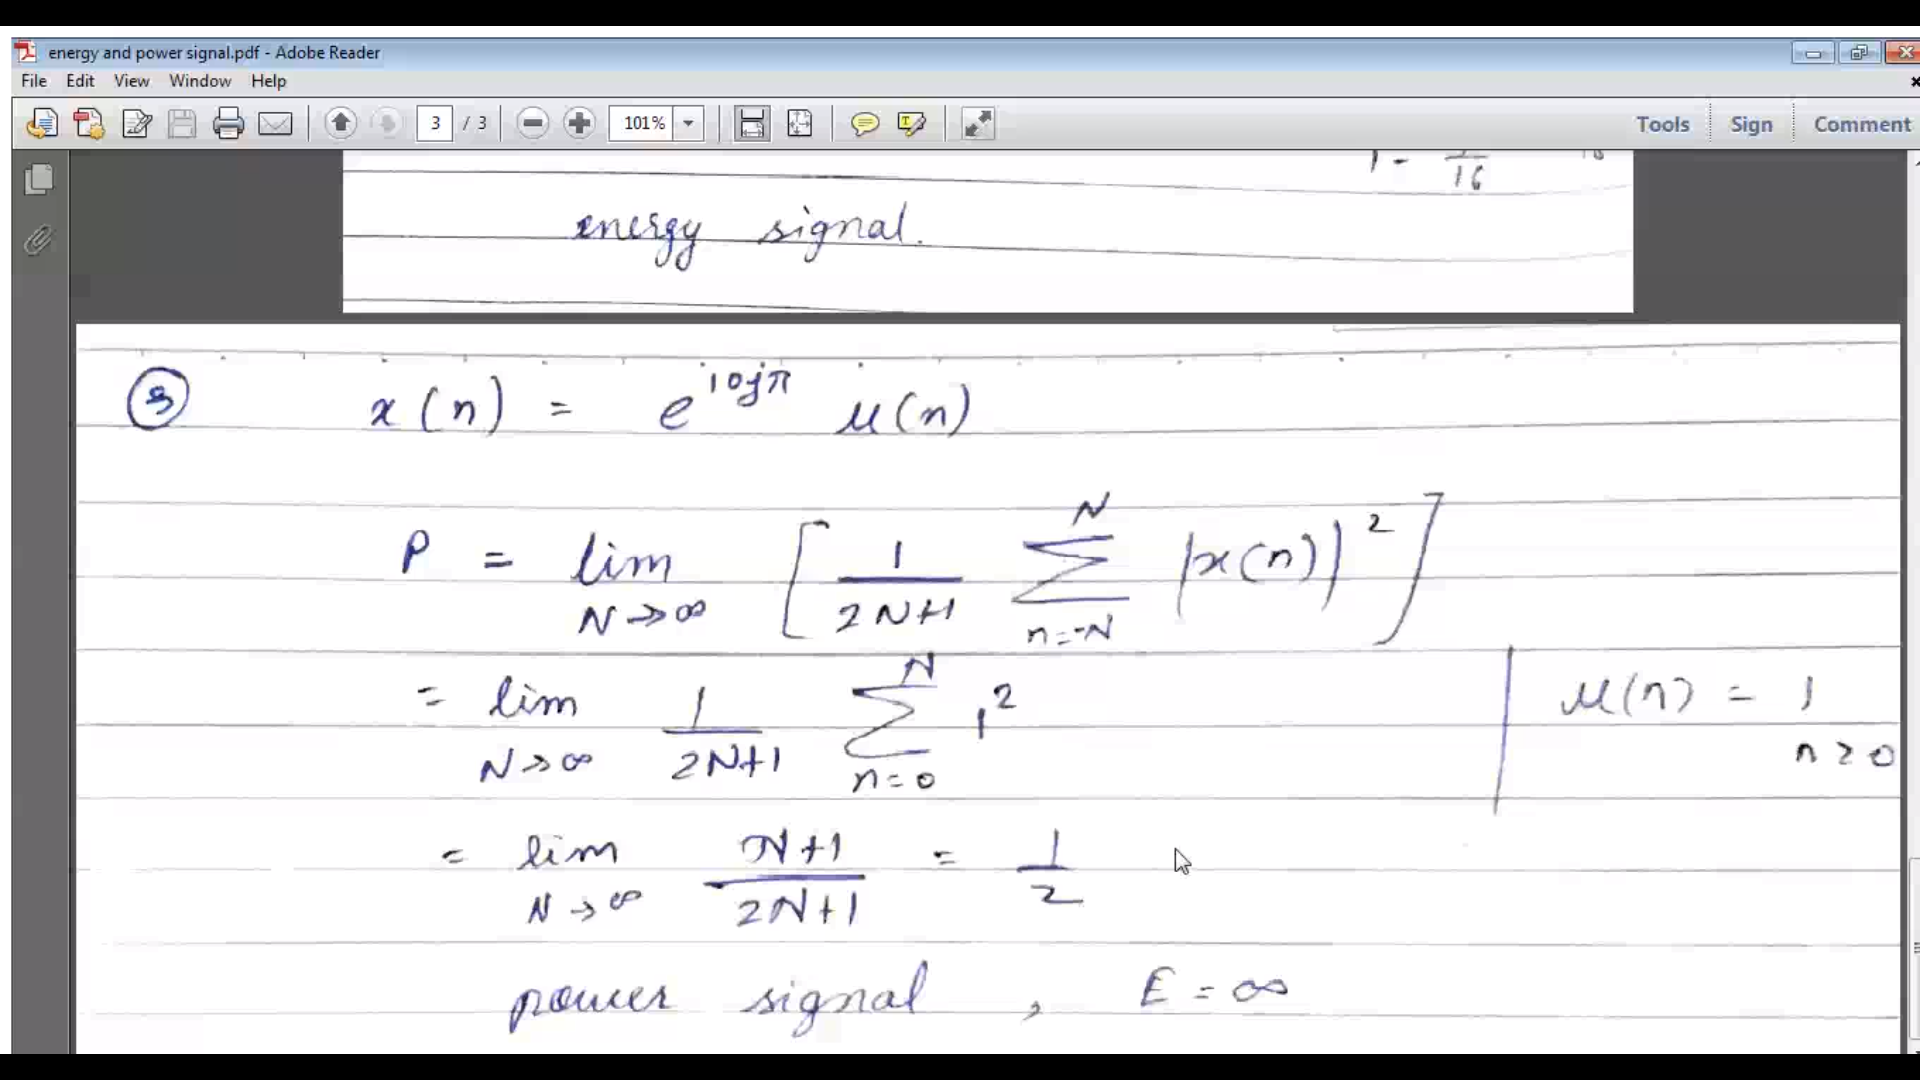 energy and power signal.pdf - Adobe Reader
File Edit View Window Help
3 / 3 101% Tools Sign Comment
1 - 1/16
energy signal.
③ x(n) = e^{10jπ} u(n)
P = lim_{N→∞} [ 1/(2N+1) Σ_{n=-N}^{N} |x(n)|² ]
= lim_{N→∞} 1/(2N+1) Σ_{n=0}^{N} 1² | u(n) = 1 n ≥ 0
= lim_{N→∞} (N+1)/(2N+1) = 1/2
power signal , E = ∞